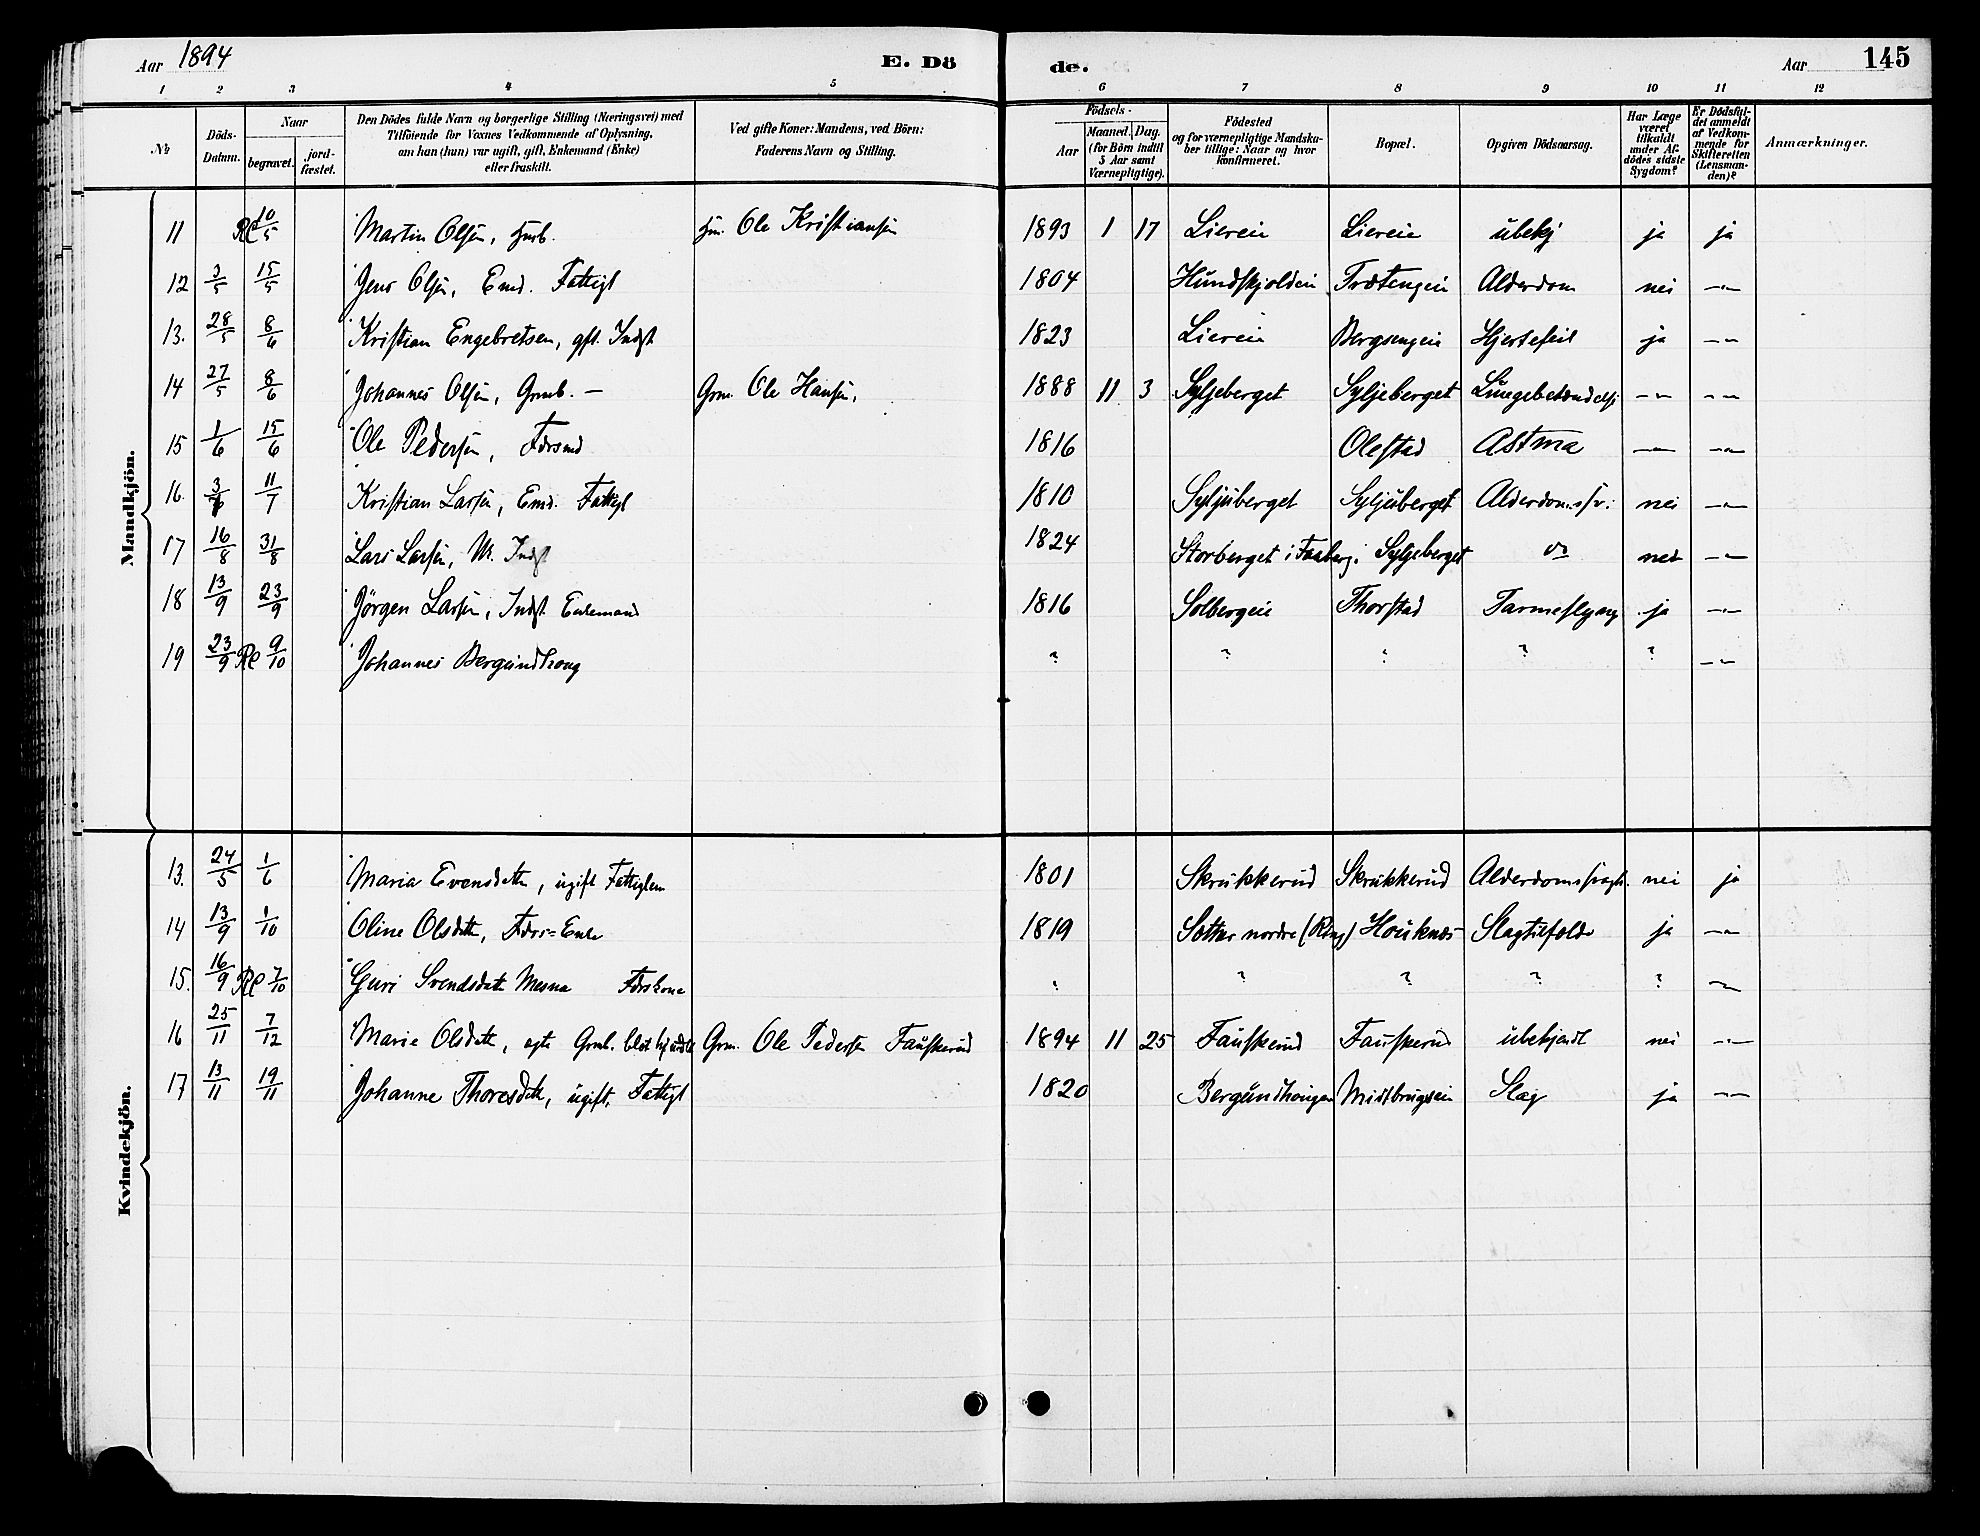 Aar 1894 E. Dö de. Aar 145
1 2 3 4 5 6 7 8 9 10 11 12
№ Döds-Datum. Naar begravet. jord-fæstet. Den Dödes fulde Navn og borgerlige Stilling (Næringsvei) med Tilföiende for Voxnes Vedkommende af Oplysning, om han (hun) var ugift, gift, Enkemand (Enke) eller fraskilt. Ved gifte Koner: Mandens, ved Börn: Faderens Navn og Stilling. Födsels- Aar Maaned. Dag. (for Börn indtil 5 Aar samt Værnepligtige). Födested og for værnepligtige Mandskaber tillige: Naar og hvor konfirmeret. Bopæl. Opgiven Dödsaarsag. Har Læge været tilkaldt under Afdödes sidste Sygdom? Er Dödsfaldet anmeldt af Vedkommende for Skifteretten (Lensmanden)? Anmærkninger.
Mandkjön.
11 10/5 Martin Olsen, Ole Kristiansen 1893 1 17 Liereie Liereie ubekj ja ja
12 3/5 15/5 Jens Olsen, Emd. Fattigl 1804 Trætengeie Alderdom nei -"-
13. 28/5 8/6 Kristian Engebretsen, gft. Indst 1823 Liereie Bergsengeie Hjertefeil ja -"-
14 27/5 8/6 Johannes Olsen, Grmb. - Grm. Ole Hansen, 1888 11 3 Syljeberget Syljeberget Lungebetændelse -"- -"-
15 1/6 15/6 Ole Pedersen, Fdrsmd 1816 Olestad Astma -"- -"-
16. 3/6 11/7 Kristian Larsen, Emd. Fattigl 1810 Syljuberget Syljuberget Alderdomssv: nei -"-
17 16/8 31/8 Lars Larsen, Indst 1824 Storberget i Faaberg. Syljeberget do nei -"-
18 13/9 23/9 Jörgen Larsen, Indst. Enkemand 1816 Solbergeie Thorstad Tarmeslyng ja -"-
19 23/9 9/10 Johannes Bergundhaug ? ? ? ? ? -"-
Kvindekjön.
13. 24/5 1/6 Maria Evensdatter, ugift Fattiglem 1801 Skrukkerud Skrukkerud nei ja
14 13/9 1/10 Oline Olsdatter, Fdrs=Enke 1819 Sætter nordre (Ring) Houknæs Slagtilfælde ja -"-
15. 16/9 7/10 Guri Svendsdatter Mesna Fdrskone ? ? ? ? ? -"-
16 25/11 7/12 Marie Olsdatter, ægte Grmb. Grm. Ole Pedersen Fauskerud 1894 11 25 Fauskerud Fauskerud ubekjendt nei -"-
17 13/11 19/11 Johanne Thoresdatter, ugift, Fattigl 1820 Bergundhougen Midtbrugseie Slag ja -"-